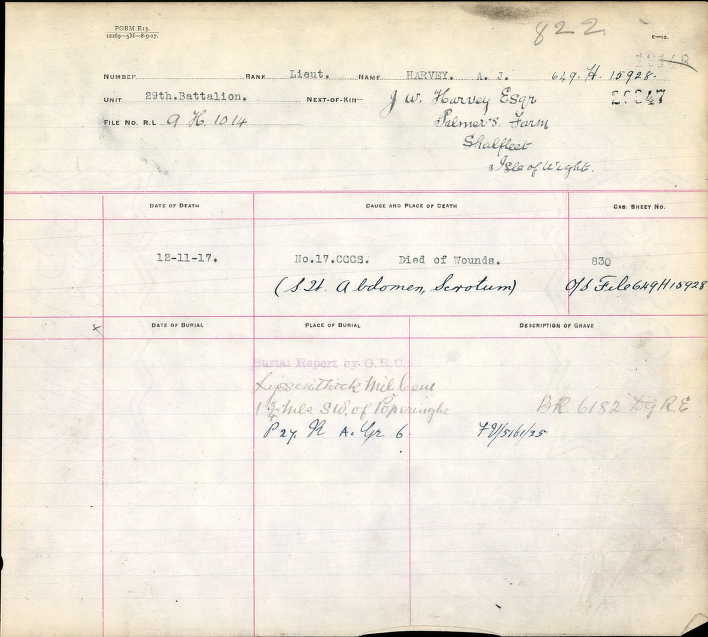 FORM R15.
822
NUMBER RANK Lieut. NAME HARVEY. A. J. 649. H. 15928.
UNIT 29th.Battalion. NEXT-OF-KIN— J W. Harvey Esqr
FILE NO. R.L. 9 H. 1014 Palmer's Farm
Shalfleet
Isle of Wight.
DATE OF DEATH CAUSE AND PLACE OF DEATH CAS: SHEET NO.
12-11-17. No.17.CCCS. Died of Wounds. 830
(S W. Abdomen, Scrotum) O/S File 649H15928
DATE OF BURIAL PLACE OF BURIAL DESCRIPTION OF GRAVE
Burial Report by G.R.U.
Lijssenthoek Mil Cem
1 3/4 Mile SW. of Poperinghe BR 6182 DGRE
P 27. N A. Gr 6.